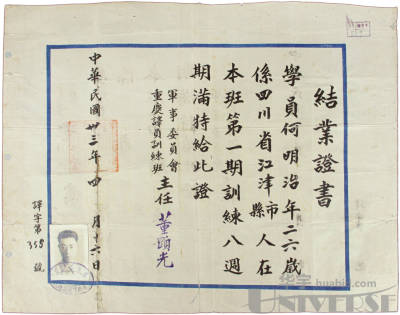 結業證書
學員何明治年二六歲
係四川省江津縣市人在
本班第一期訓練八週
期滿特給此證
軍事委員會
重慶譯員訓練班
主任 董顯光
中華民國卅三年四月十六日
譯字第358號
华宇 huabid.com
UNIVERSE